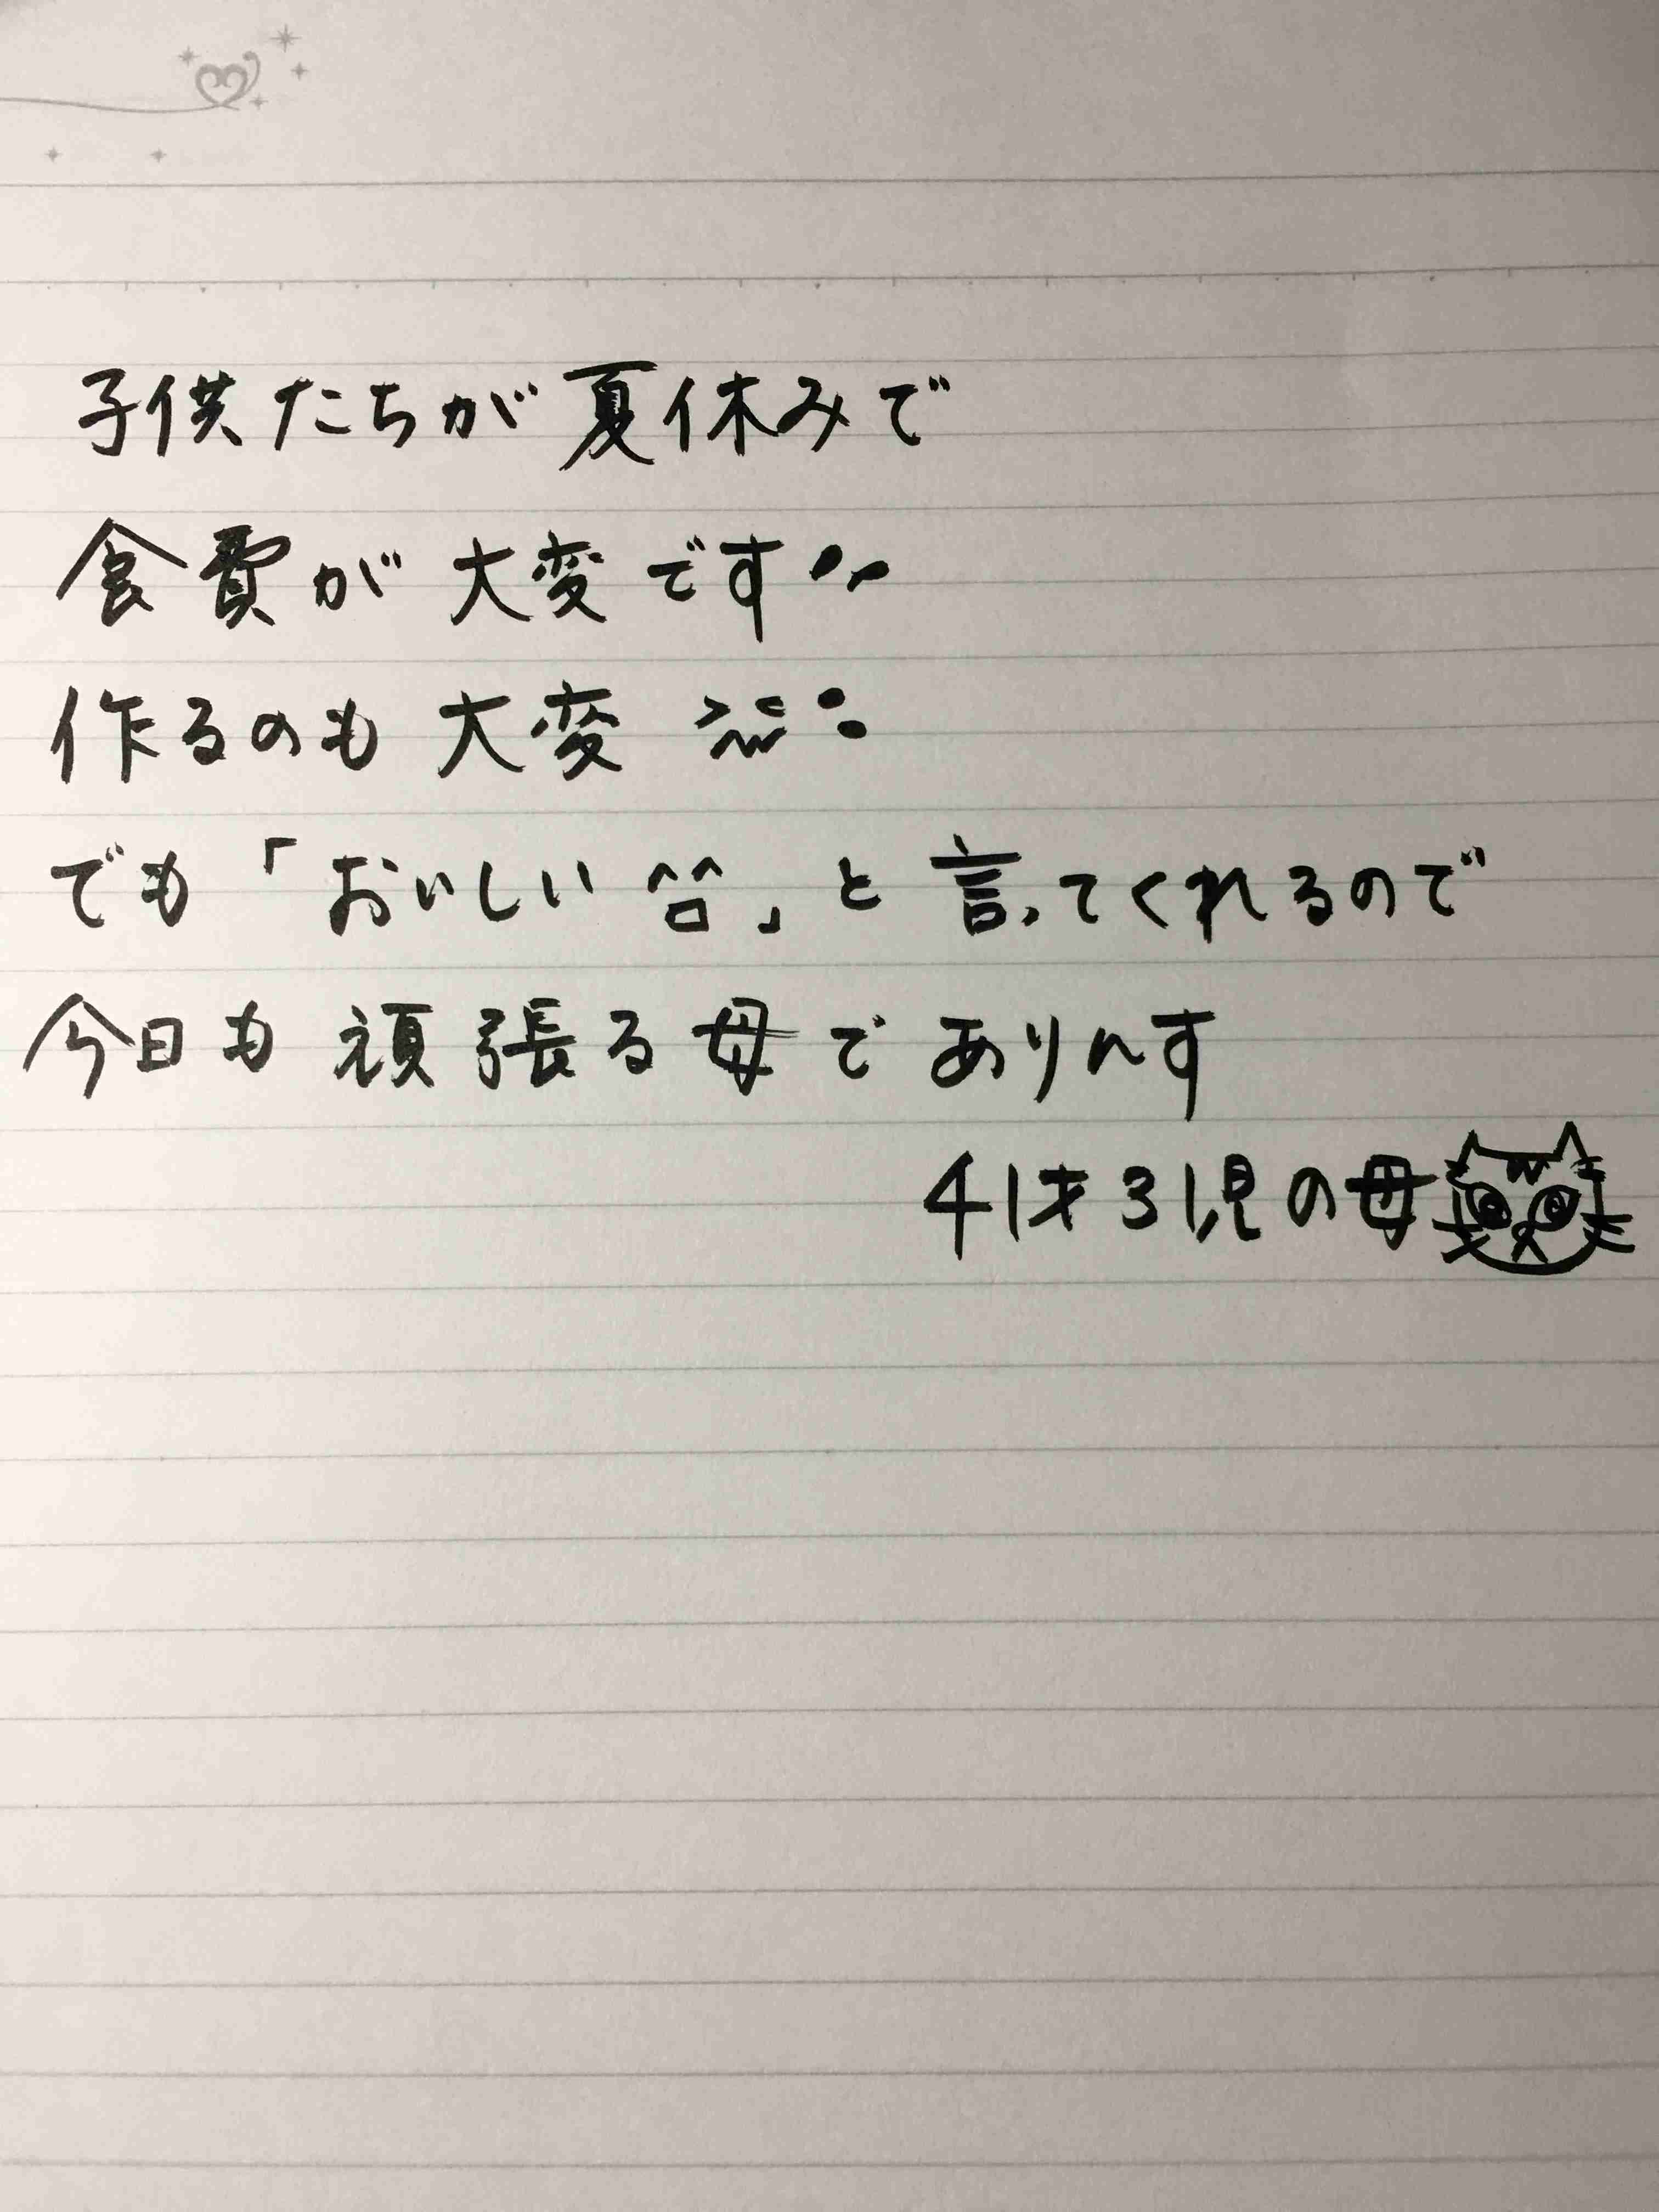 子供たちが夏休みで
食費が大変です
作るのも大変
でも「おいしい^ロ^」と言ってくれるので
今日も頑張る母でありんす
41才3児の母